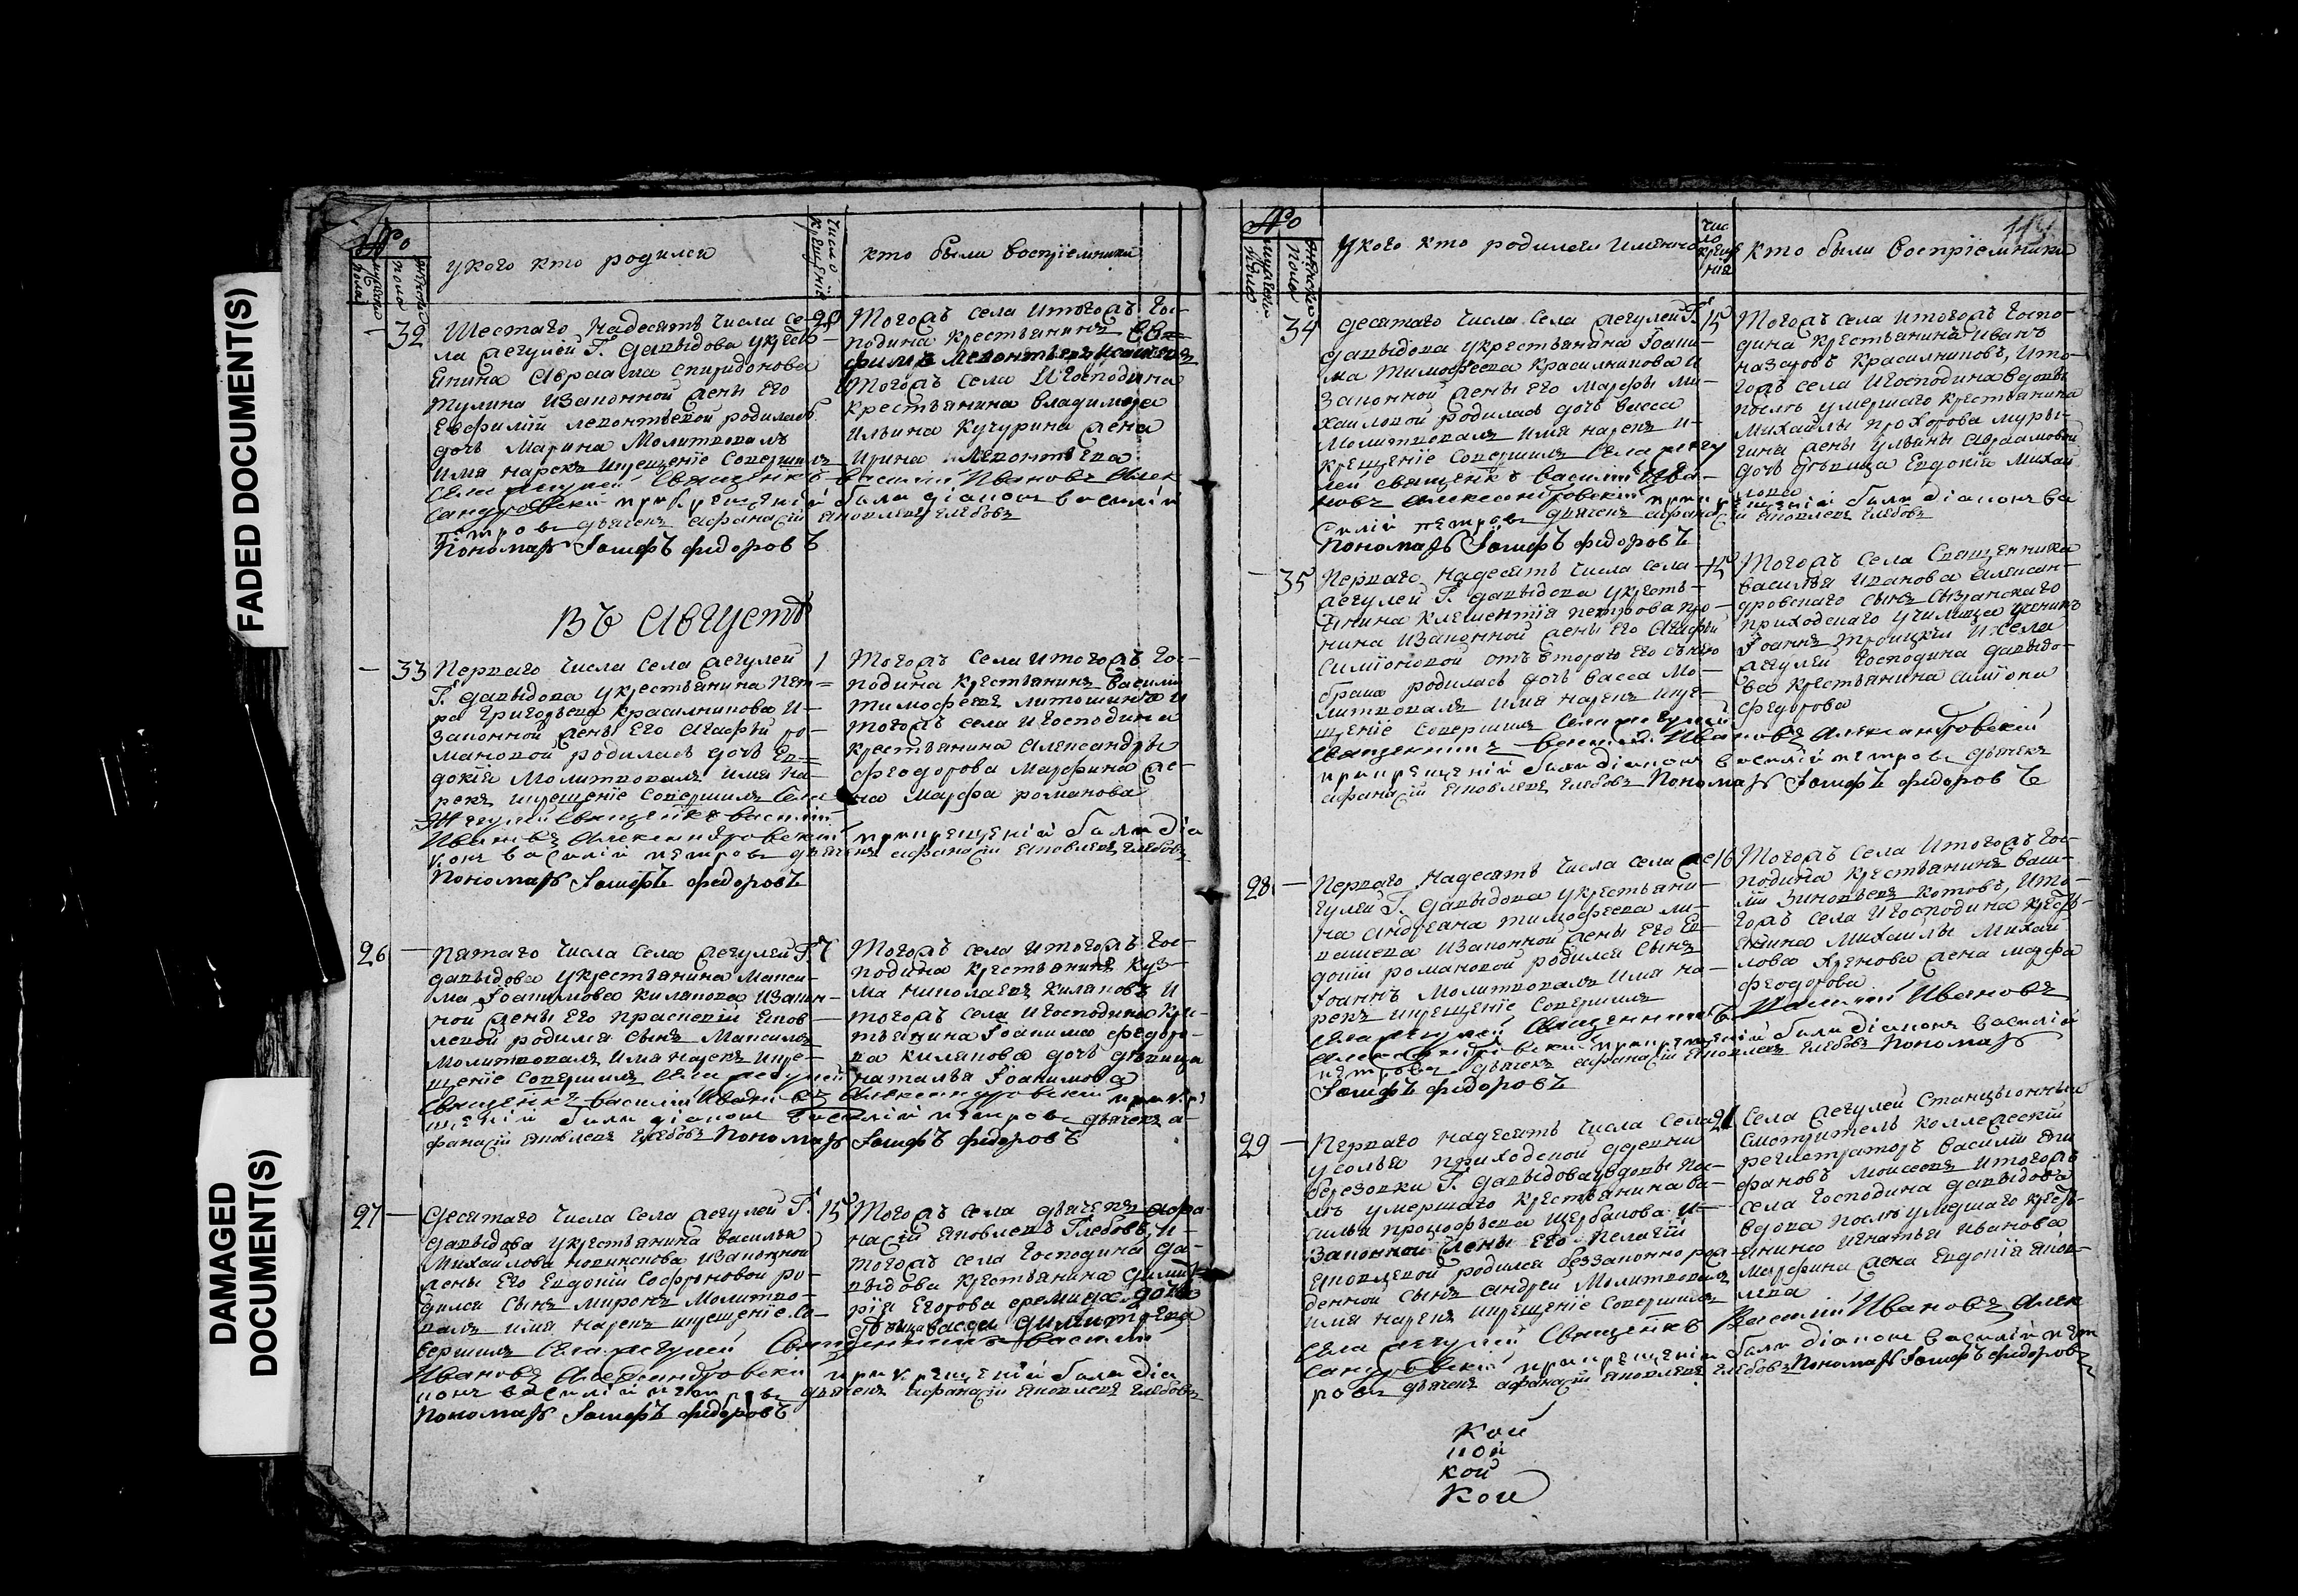 FADED DOCUMENT(S)
DAMAGED
DOCUMENT(S)
№
мужеска
пола
женска
пола
У кого кто родился
Число
крещенiе
кто были воспрiемники
32
Шестаго надесять числа се-
ла Жегулей Г. Давыдова у крѣсть-
янина Авраама Спиридонова
Тулина и законной жены его
Евфимiи Леонтьевой родилась
дочь Марина Молитвовалъ
имя нарекъ и крещенiе Совершилъ
Села Жегулей Священикъ Василiй Ивановъ Алек
сандровскiй при крещенiи были дiаконъ василiй
петровъ дьячекъ афанасiй яковлевъ глебовъ
Пономарь Iосифъ федоровъ
20
Тогожъ села и тогожъ Гос-
подина крестьянинъ
Тогожъ села и Господина
крестьянина Владимера
Ильина Кучурина жена
Ирина Леонтьева
Въ Августѣ
33
Перваго числа села Жегулей
Г. Давыдова у крестьянина Пет-
ра Григорьева Красильникова и
законной жены его Агафьи ро-
мановой родилась дочь Ев-
докiя Молитвовалъ имя на-
рекъ и крещенiе совершилъ Села
Жегулей Священикъ Василiй
Ивановъ Александровскiй при крещенiи были дiа
конъ василiй петровъ дьячекъ афанасiй яковлевъ глебовъ
Пономарь Iосифъ федоровъ
1
Тогожъ села и тогожъ Гос-
подина крестьянинъ Василiй
Тимофеевъ Литошинъ и
тогожъ села и Господина
крестьянина Александры
Феодорова Марфина же-
на Марфа романова
26
Пятаго числа села Жегулей Г.
Давыдова у крестьянина Макси-
ма Iоакимова Килякова и закон-
ной жены его Прасковiи Яков-
левой родился сынъ Максимъ
Молитвовалъ имя нарекъ и кре-
щенiе совершилъ Села Жегулей
Священикъ Василiй Ивановъ Александровскiй при кре
щенiи были дiаконъ Василiй петровъ дьячекъ а-
фанасiй яковлевъ глебовъ Пономарь Iосифъ федоровъ
7
Тогожъ села и тогожъ Гос-
подина крестьянинъ Куз-
ма Николаевъ Киляковъ и
тогожъ села и Господина кре-
стьянина Iоакима Федоро-
ва Килякова дочь девица
наталья Iоакимова
27
Десятаго числа села Жегулей Г.
Давыдова у крестьянина Василья
Михайлова новикова и законной
жены его Евдокiи Софроновой ро-
дился сынъ Миронъ Молитво-
валъ имя нарекъ и крещенiе со-
вершилъ Села Жегулей Священникъ Василiй
Ивановъ Александровскiй при крещенiи были дiа
конъ василiй петровъ дьячекъ афанасiй яковлевъ глебовъ
Пономарь Iосифъ федоровъ
15
Тогожъ села дьячекъ Афа-
насiй Яковлевъ Глебовъ и
тогожъ села Господина Да-
выдова крестьянина Димит-
рiя Егорова дочь
девица васса димитрiева
№
мужеска
пола
женска
пола
У кого кто родился именно
Чис
ло
креще
нiя
кто были воспрiемники
34
Десятаго числа села Жегулей Г.
Давыдова у крестьянина Iоаки-
ма Тимофеева Красильникова и
законной жены его Марфы Ми-
хайловой родилась дочь васса
Молитвовалъ имя нарекъ и
крещенiе совершилъ Села Жегу
лей священикъ Василiй Ива-
новъ Александровскiй при крещенiи были дiаконъ Ва
силiй петровъ дьячекъ афанасiй яковлевъ глебовъ
Пономарь Iосифъ федоровъ
15
Тогожъ села и тогожъ Госпо-
дина крестьянинъ Иванъ
Назаровъ Красильниковъ, и то-
гожъ села и Господина вдовы
послѣ умершаго крестьянина
Михайлы Прохорова Муры-
гина жены Ульяны Авраамовой
дочь девица Евдокiя Михай
лова
35
Перваго надесять числа села
Жегулей Г. Давыдова у кресть-
янина Клементiя петрова про-
нина и законной жены его Агафьи
Симiоновой отъ втораго его съ нею
брака родилась дочь васса Мо-
литвовалъ имя нарекъ и кре-
щенiе совершилъ Села Жегулей
Священникъ Василiй Ивановъ Александровскiй
при крещенiи были дiаконъ василiй петровъ дьячекъ
афанасiй яковлевъ глебовъ Пономарь Iосифъ федоровъ
15
Тогожъ села Священника
Василья Иванова Алексан-
дровскаго сынъ Сызранскаго
приходскаго училища ученикъ
Iоаннъ Троицкiй и села
Жегулей Господина Давыдо-
ва крестьянина Симiона
Федорова
28
Перваго надесять числа села Же
гулей Г. Давыдова у крестьяни-
на Андреана Тимофеева ли-
вашева и законной жены его Ев-
докiи романовой родился сынъ
Iоаннъ Молитвовалъ имя на-
рекъ и крещенiе Совершилъ
Села Жегулей Священникъ Василiй Ивановъ
Александровскiй при крещенiи были дiаконъ василiй
петровъ дьячекъ афанасiй яковлевъ глебовъ Пономарь
Iосифъ федоровъ
16
Тогожъ села и тогожъ Гос-
подина крестьянинъ Васи-
лiй Зиновьевъ Котовъ, и то-
гожъ села и Господина кресть-
янина Михайлы Михай
лова Хренова жена Марфа
Феодорова
29
Перваго надесять числа Села
Усолья приходской деревни
Березовки Г. Давыдова у вдовы пос-
лѣ умершаго крестьянина Ва-
силья Прокофьева Щербакова и
законной жены его Пелагiи
Яковлевой родился беззаконно рож-
денной сынъ Андрей Молитвовалъ
имя нарекъ и крещенiе Совершилъ
Села Жегулей Священикъ Василiй Ивановъ Алек
сандровскiй при крещенiи были дiаконъ василiй пет
ровъ дьячекъ афанасiй яковлевъ глебовъ Пономарь Iосифъ федоровъ
21
Села Жегулей Станцiонный
Смотритель Коллежскiй
регистраторъ Василiй Епи
фановъ Моисеевъ и тогожъ
села Господина Давыдова
вдова послѣ умершаго кресть-
янина Игнатья Иванова
Марфина жена Евдокiя Яков-
лева
кой
ной
кой
Кой